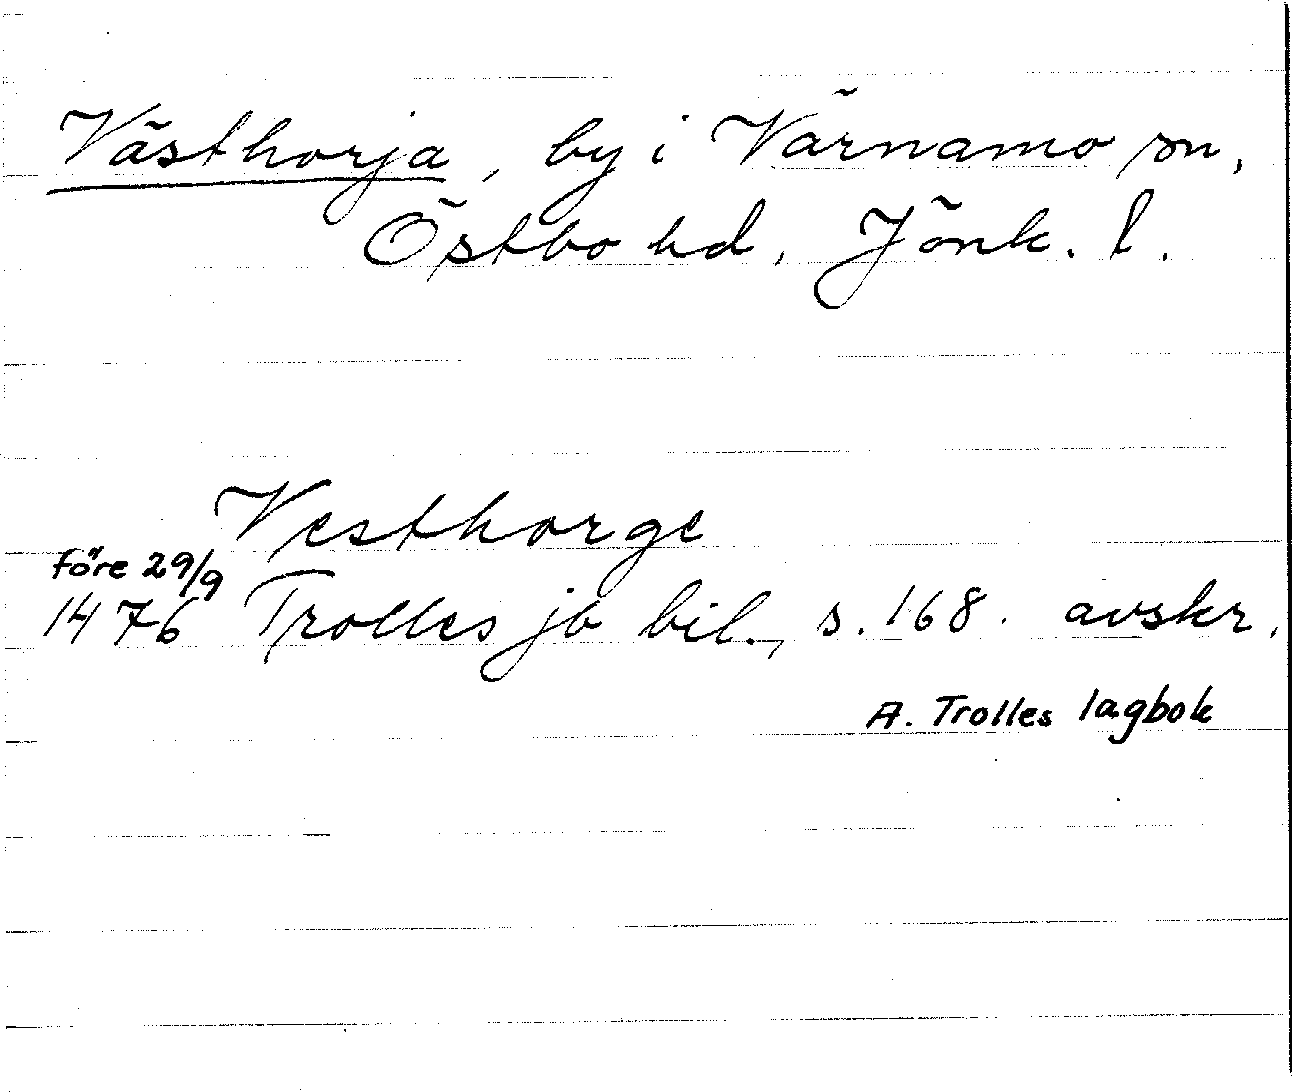 Västhorja, by i Värnamo sn,
Östbo hd, Jönk. l.
Vesthorge
före 29/9
1476 Trolles jb bil., s. 168. avskr.
A. Trolles lagbok